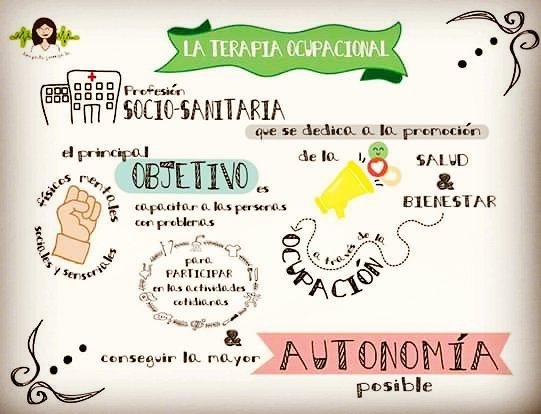 LA TERAPIA OCUPACIONAL
Profesión
SOCIO-SANITARIA
que se dedica a la promoción
de la
SALUD
&
BIENESTAR
a través de la
OCUPACIÓN
el principal
OBJETIVO es
capacitar a las personas
con problemas
físicos mentales
sociales y sensoriales
para
PARTICIPAR
en las actividades
cotidianas
&
conseguir la mayor
AUTONOMÍA
posible